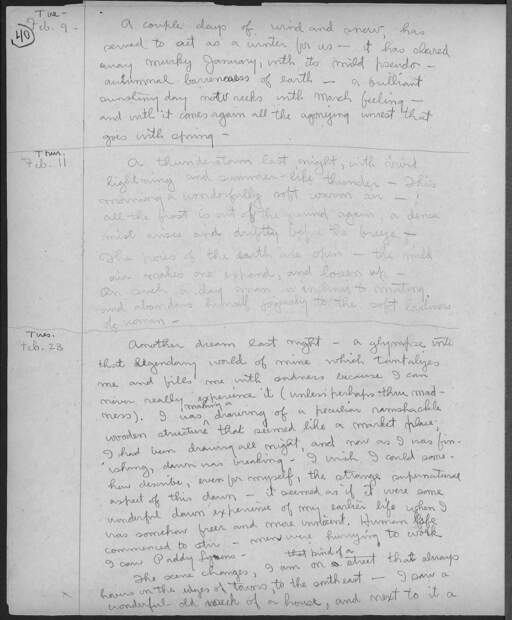 40
Tue-
Feb. 9 -
A couple days of wind and snow, has
served to act as a winter for us — it has cleared
away murky January, with its mild pseudo-
autumnal barrenness of earth — a brilliant
sunshiny day now reeks with March feeling —
and with it comes again all the agonizing unrest that
goes with spring —
Thur.
Feb. 11
A thunderstorm last night, with vivid
lightning and summer-like thunder — This
morning a wonderfully soft warm air —
all the frost is out of the ground again, a dense
mist arises and drifts before the breeze —
The pores of the earth are open — the mild
air makes one expand, and loosen up —
On such a day man inclines to mating,
and abandons himself joyously to the soft
of woman —
Tues.
Feb. 23
Another dream last night — a glympse into
that legendary world of mine which tantalizes
me and fills me with sadness because I can
never really experience it (unless perhaps thru mad-
ness). I was making a drawing of a peculiar ramshackle
wooden structure that seemed like a market place;
I had been drawing all night, and now as I was fin-
ishing, dawn was breaking — I wish I could some-
how describe, even for myself, the strange supernatural
aspect of this dawn — it seemed as if it were some
wonderful dawn experience of my earlier life when I
was somehow freer and more innocent. Human life
commenced to stir — men were hurrying to work
I saw Paddy Lyons —
The scene changes, I am on that kind of a street that always
haunts me on the edges of towns, to the southeast — I saw a
wonderful old wreck of a house, and next to it a